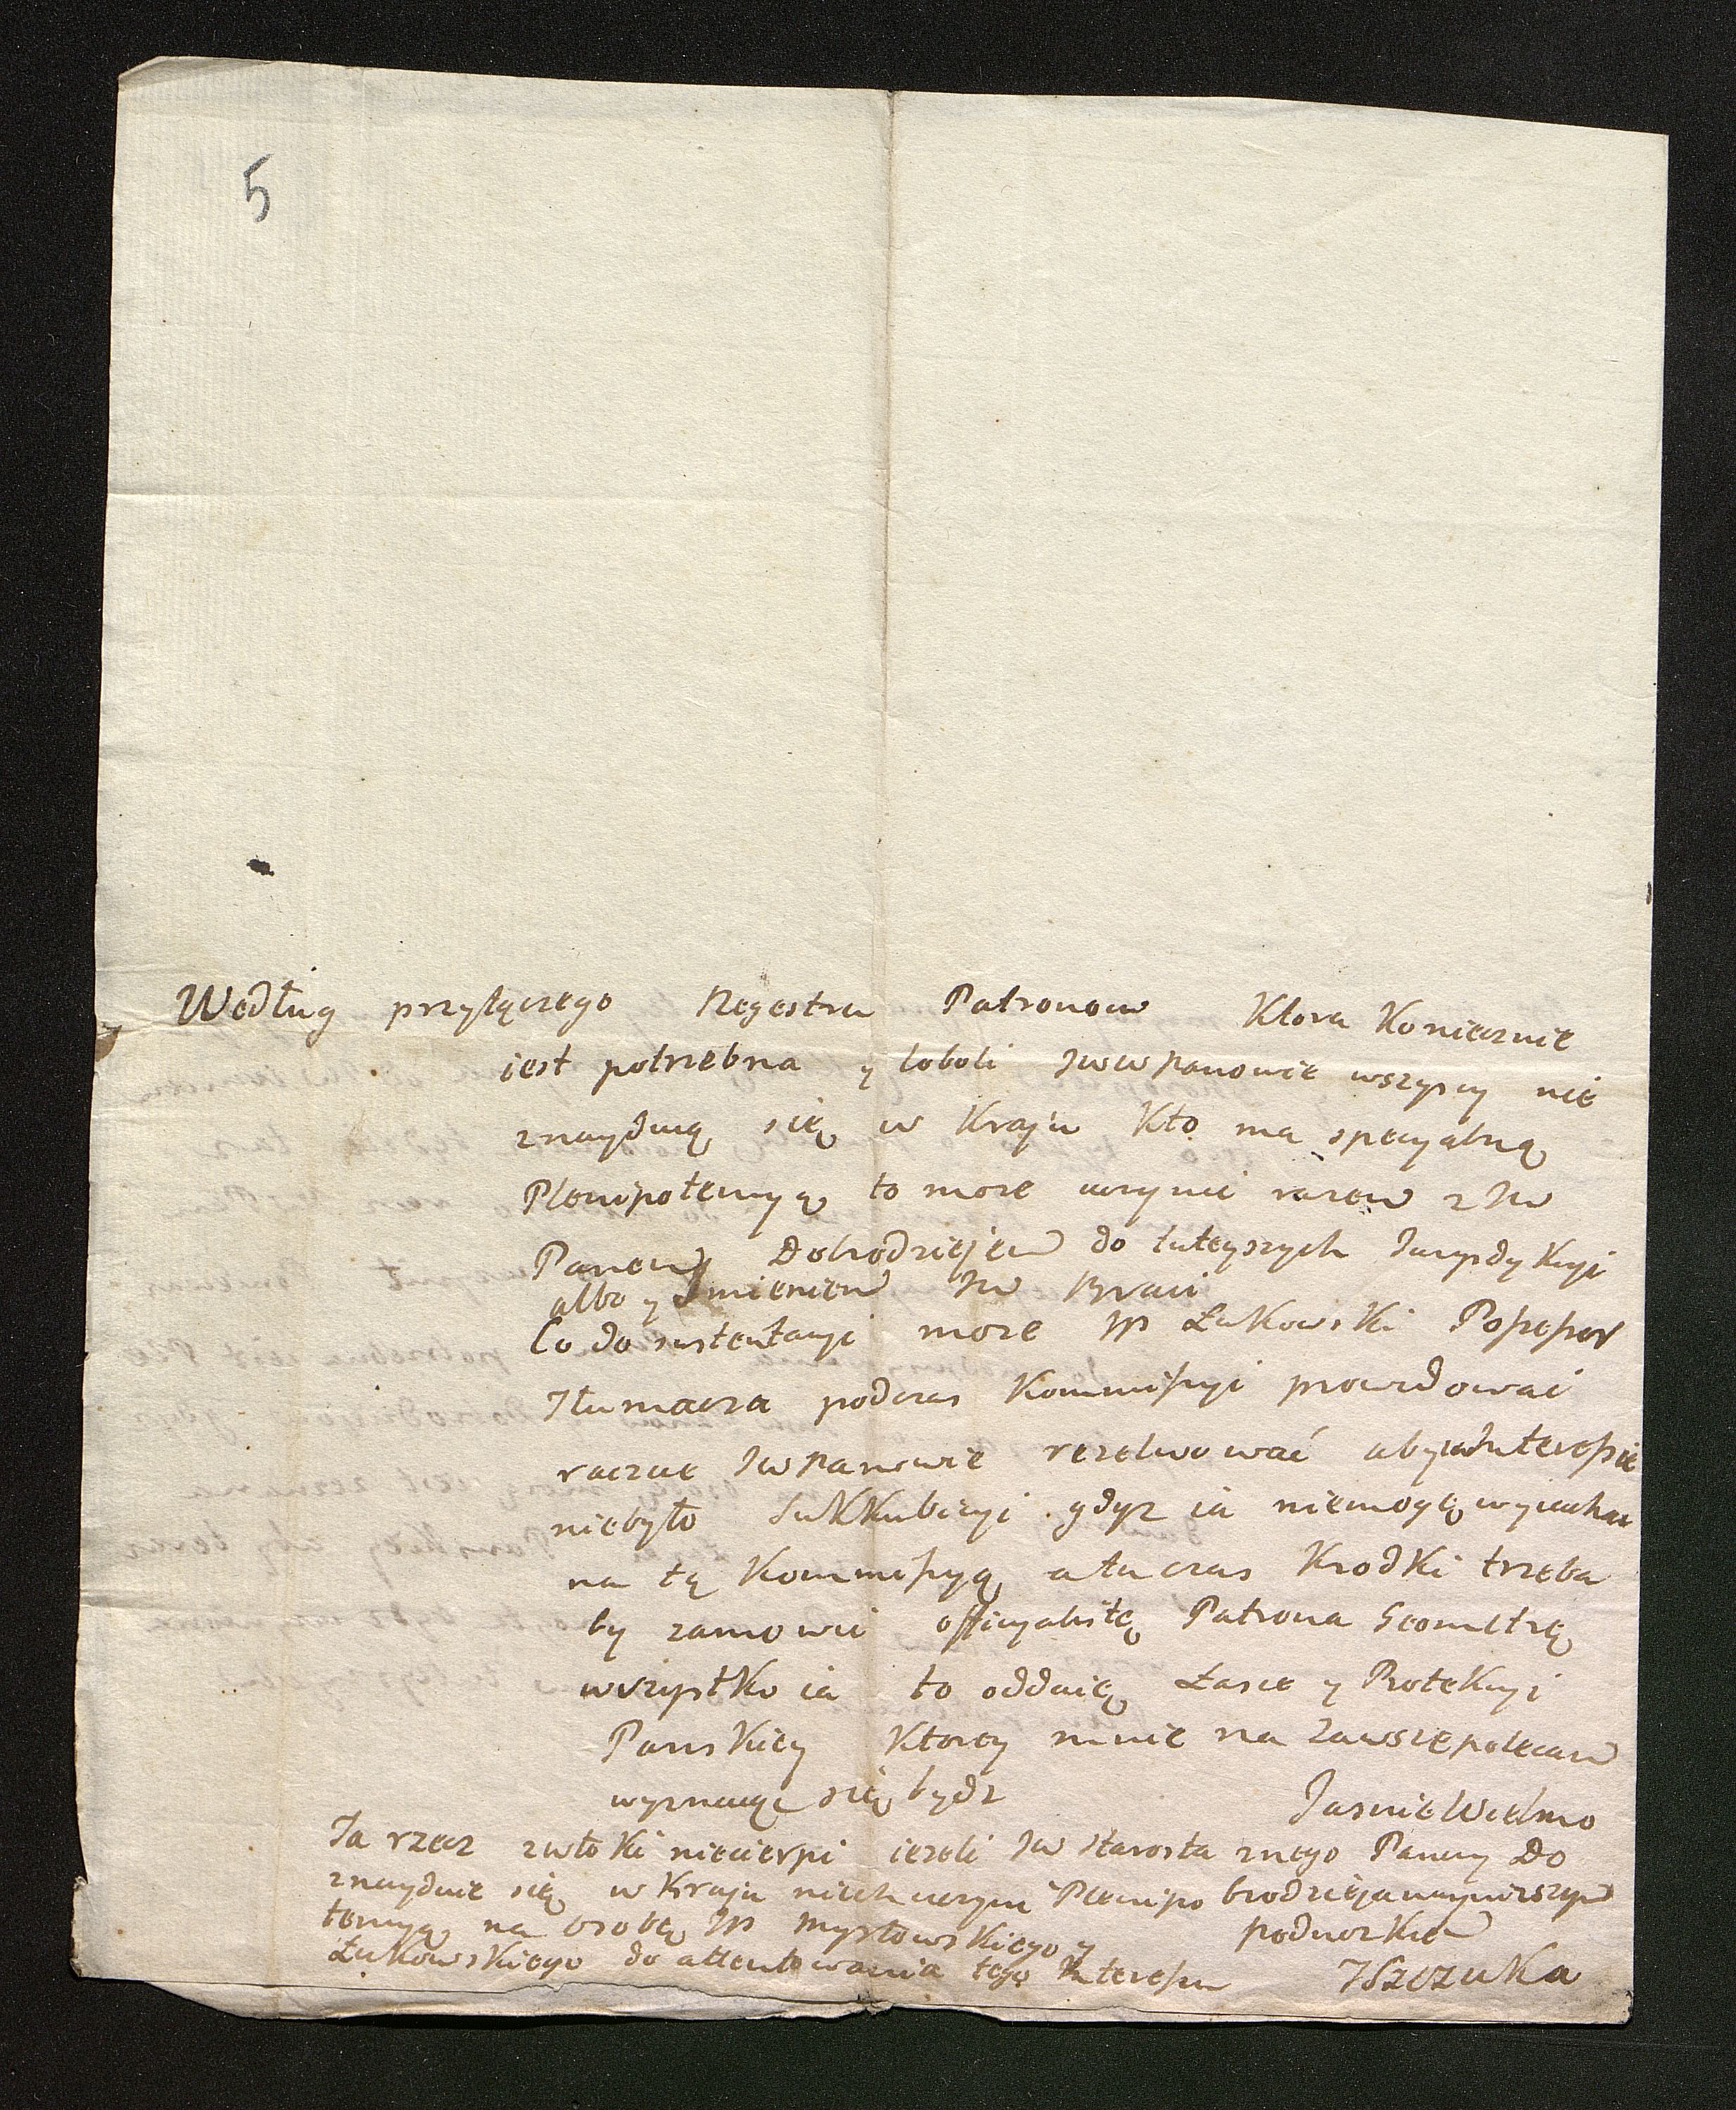 5
Według przyłączego Regestru Patronow Ktora Koniecznie
iest potrzebna y loboli JWW Panowie wszyscy nie
znayduią się w Kraju Kto ma specyalną
Plenipotencyą to moze uczynic razem z JW
Panem Dobrodziejem do tuteyszych Jurysdykcyi
albo y Imieniem JW Braci
Co do sustentacyi moze JP Łukowski Possessor
Tłumacza podczas Kommissyi prowidować
raczcie JW Panowie rezolwować aby w Interessie
niebyło Sukkubicyi gdyz ia niemogę wyiechać
na tę Kommissyą a tu czas Krodki trzeba
by zamowić officyalistę Patrona Geometrę
wszystko ia to oddaię Łasce y Protekcyi
Panskiey Ktorey mnie na zawsze polecam
wyznaiąc się bydz
Jasnie Wielmo
znego Pana y Do
brodzieja naynizszym
podnozkiem
JSzczuka
Ta rzecz zwłoki niecierpi iezeli JW Starosta
znayduie się w Kraju niech uczyni Plenipo
tencyą na Osobę JP Mysłowskiego y
Łukowskiego do attentowania tego Interessu